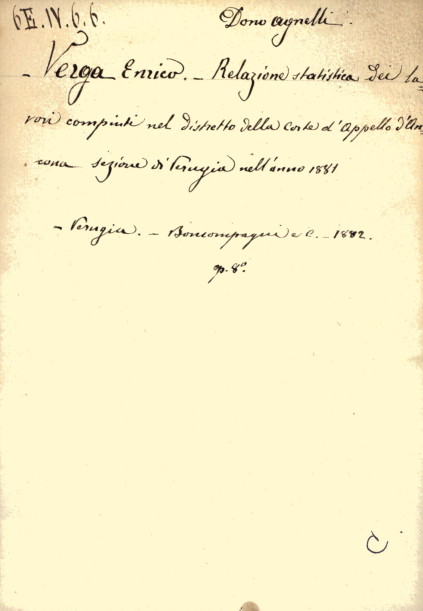 6E.IV.6.6.
Dono Agnelli.
- Verga Enrico. - Relazione statistica dei la=
vori compiuti nel distretto della Corte d'Appello d'An=
cona sezione di Perugia nell'anno 1881
- Perugia. - Boncompagni e C. - 1882.
p. 8º.
C